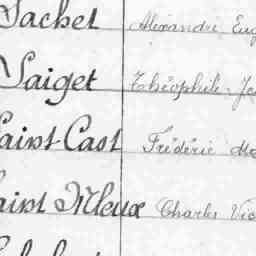 Sachet Alexandre Eug
Saiget Théophile Je
Saint Cast Frédéric
Saint Mleux Charles Vic